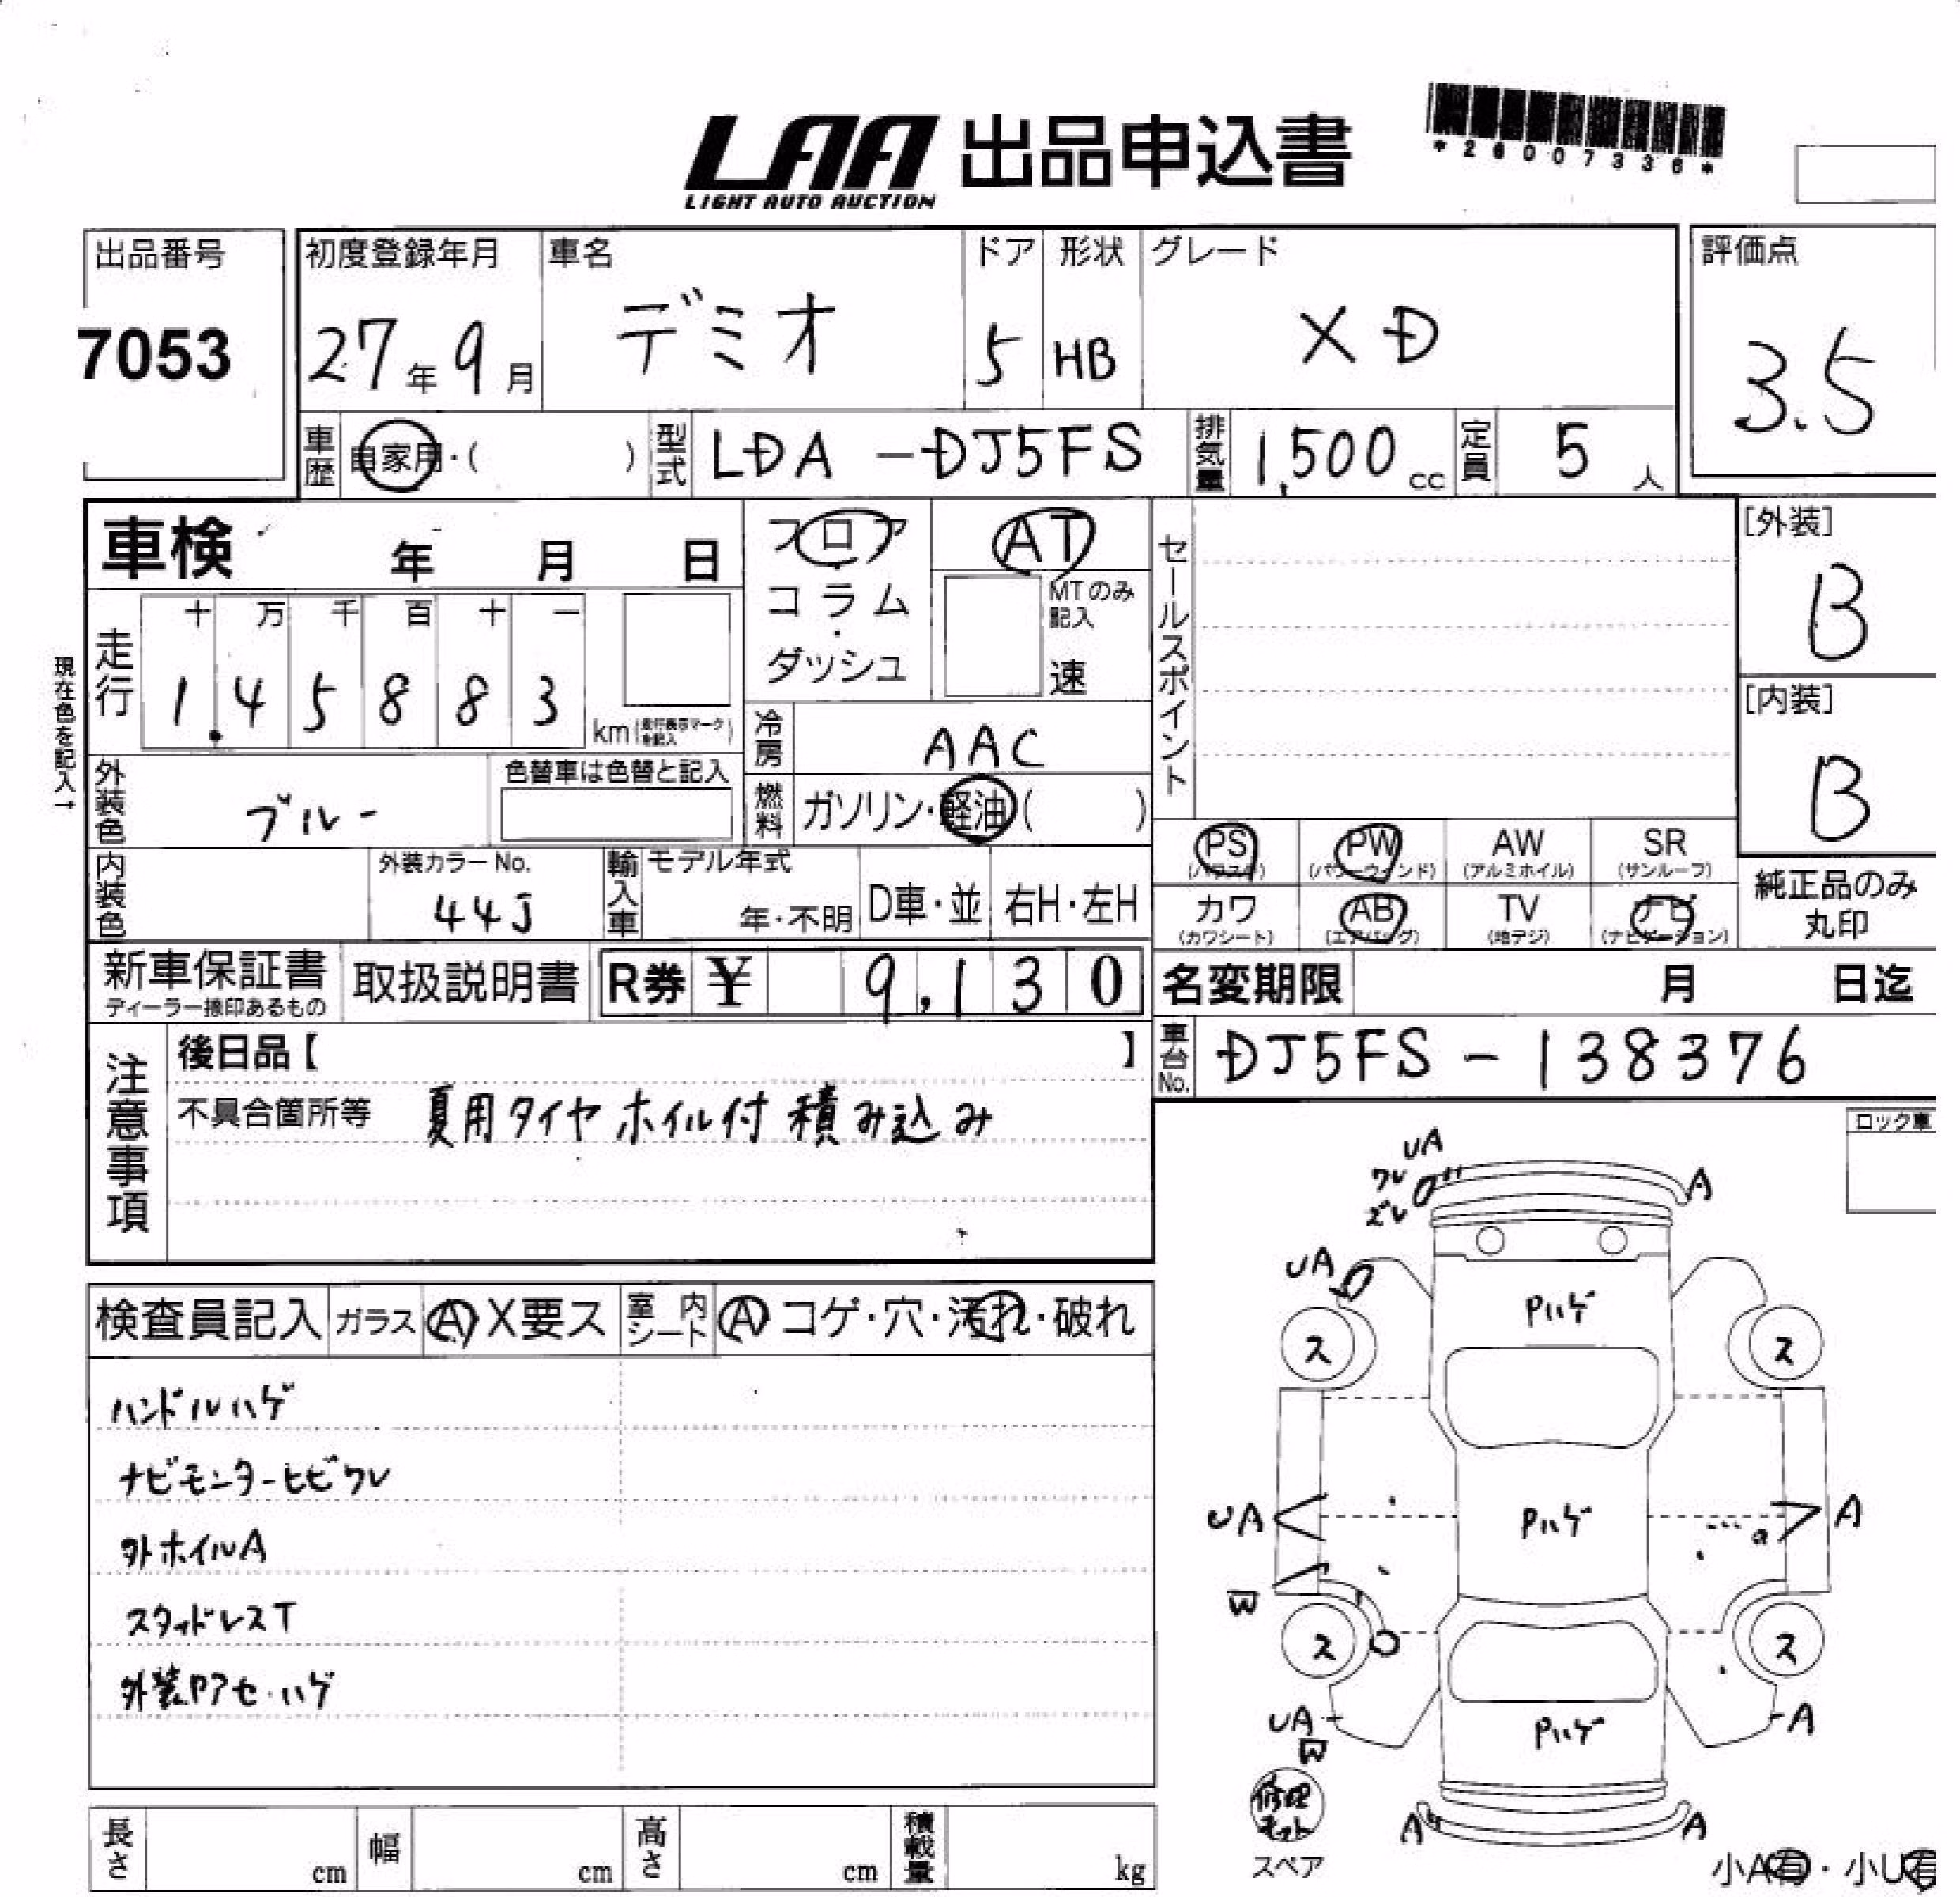 LAA 出品申込書
LIGHT AUTO AUCTION
*26007336*
出品番号
7053
初度登録年月
27年9月
車名
デミオ
ドア
5
形状
HB
グレード
XD
評価点
3.5
車歴 自家用・( )
型式 LDA-DJ5FS
排気量 1,500 cc
定員 5 人
車検 年 月 日
フロア・コラム・ダッシュ
AT
MTのみ記入
速
セールスポイント
[外装]
B
[内装]
B
現在色を記入→
走行
十 万 千 百 十 一
1.45883
km(走行表示マークを記入)
冷房 AAC
外装色 ブルー
色替車は色替と記入
燃料 ガソリン・軽油( )
内装色
外装カラーNo.
44J
輸入車
モデル年式
年・不明
D車・並
右H・左H
PS (パワステ)
PW (パワーウィンド)
AW (アルミホイル)
SR (サンルーフ)
カワ (カワシート)
AB (エアバッグ)
TV (地デジ)
ナビ (ナビゲーション)
純正品のみ
丸印
新車保証書
ディーラー捺印あるもの
取扱説明書
R券 ¥ 9,130
名変期限 月 日迄
注意事項
後日品【 】
不具合箇所等 夏用タイヤホイル付積み込み
車台No. DJ5FS-138376
ロック車
検査員記入 ガラス A X要ス
室内シート A コゲ・穴・汚れ・破れ
ハンドルハゲ
ナビモニターヒビワレ
外ホイルA
スタッドレスT
外装ヤケアセ・ハゲ
UA
ワレ
ズレ
A
UA
Pハゲ
ス
ス
UA
Pハゲ
A
W
ス
ス
UA
W
Pハゲ
A
修理キット
スペア
A
A
小A有・小U有
長さ cm
幅 cm
高さ cm
積載量 kg